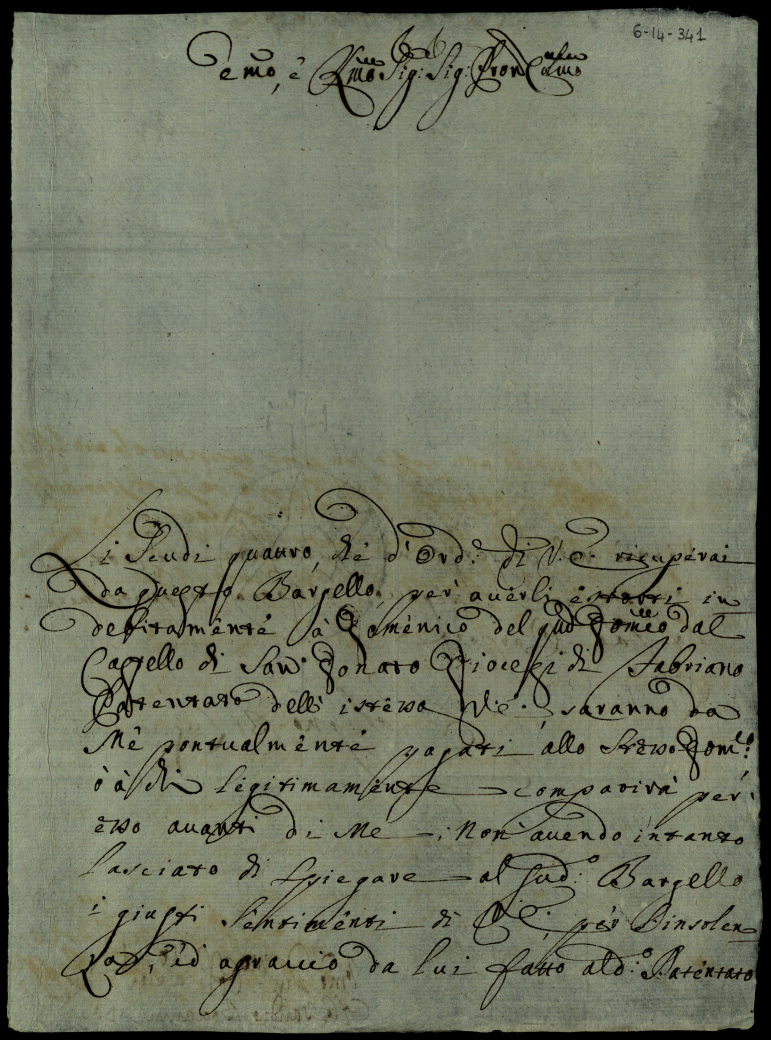 6-14-341
Emo, e Rmo Sig: Sig: Pron Colmo
Li Scudi quattro, ché d'Ord: di V: E: ricuperai
da questo Bargello, per averli estorti in
debitamente à Domenico del qud
dal
Castello di San Donato Diocesi di Fabriano
Patentato dell'istessa V: E:, saranno da
Mé pontualménté pagati allo stesso Domco:
ò à chi légitimamente comparirà per
esso avanti di Me; Non avendo intanto
lasciato di spiegare al sudo: Bargello
i giusti sentiménti di V: E:, pér l'insolen=
za, ed agravio da lui fatto al do: Paténtato